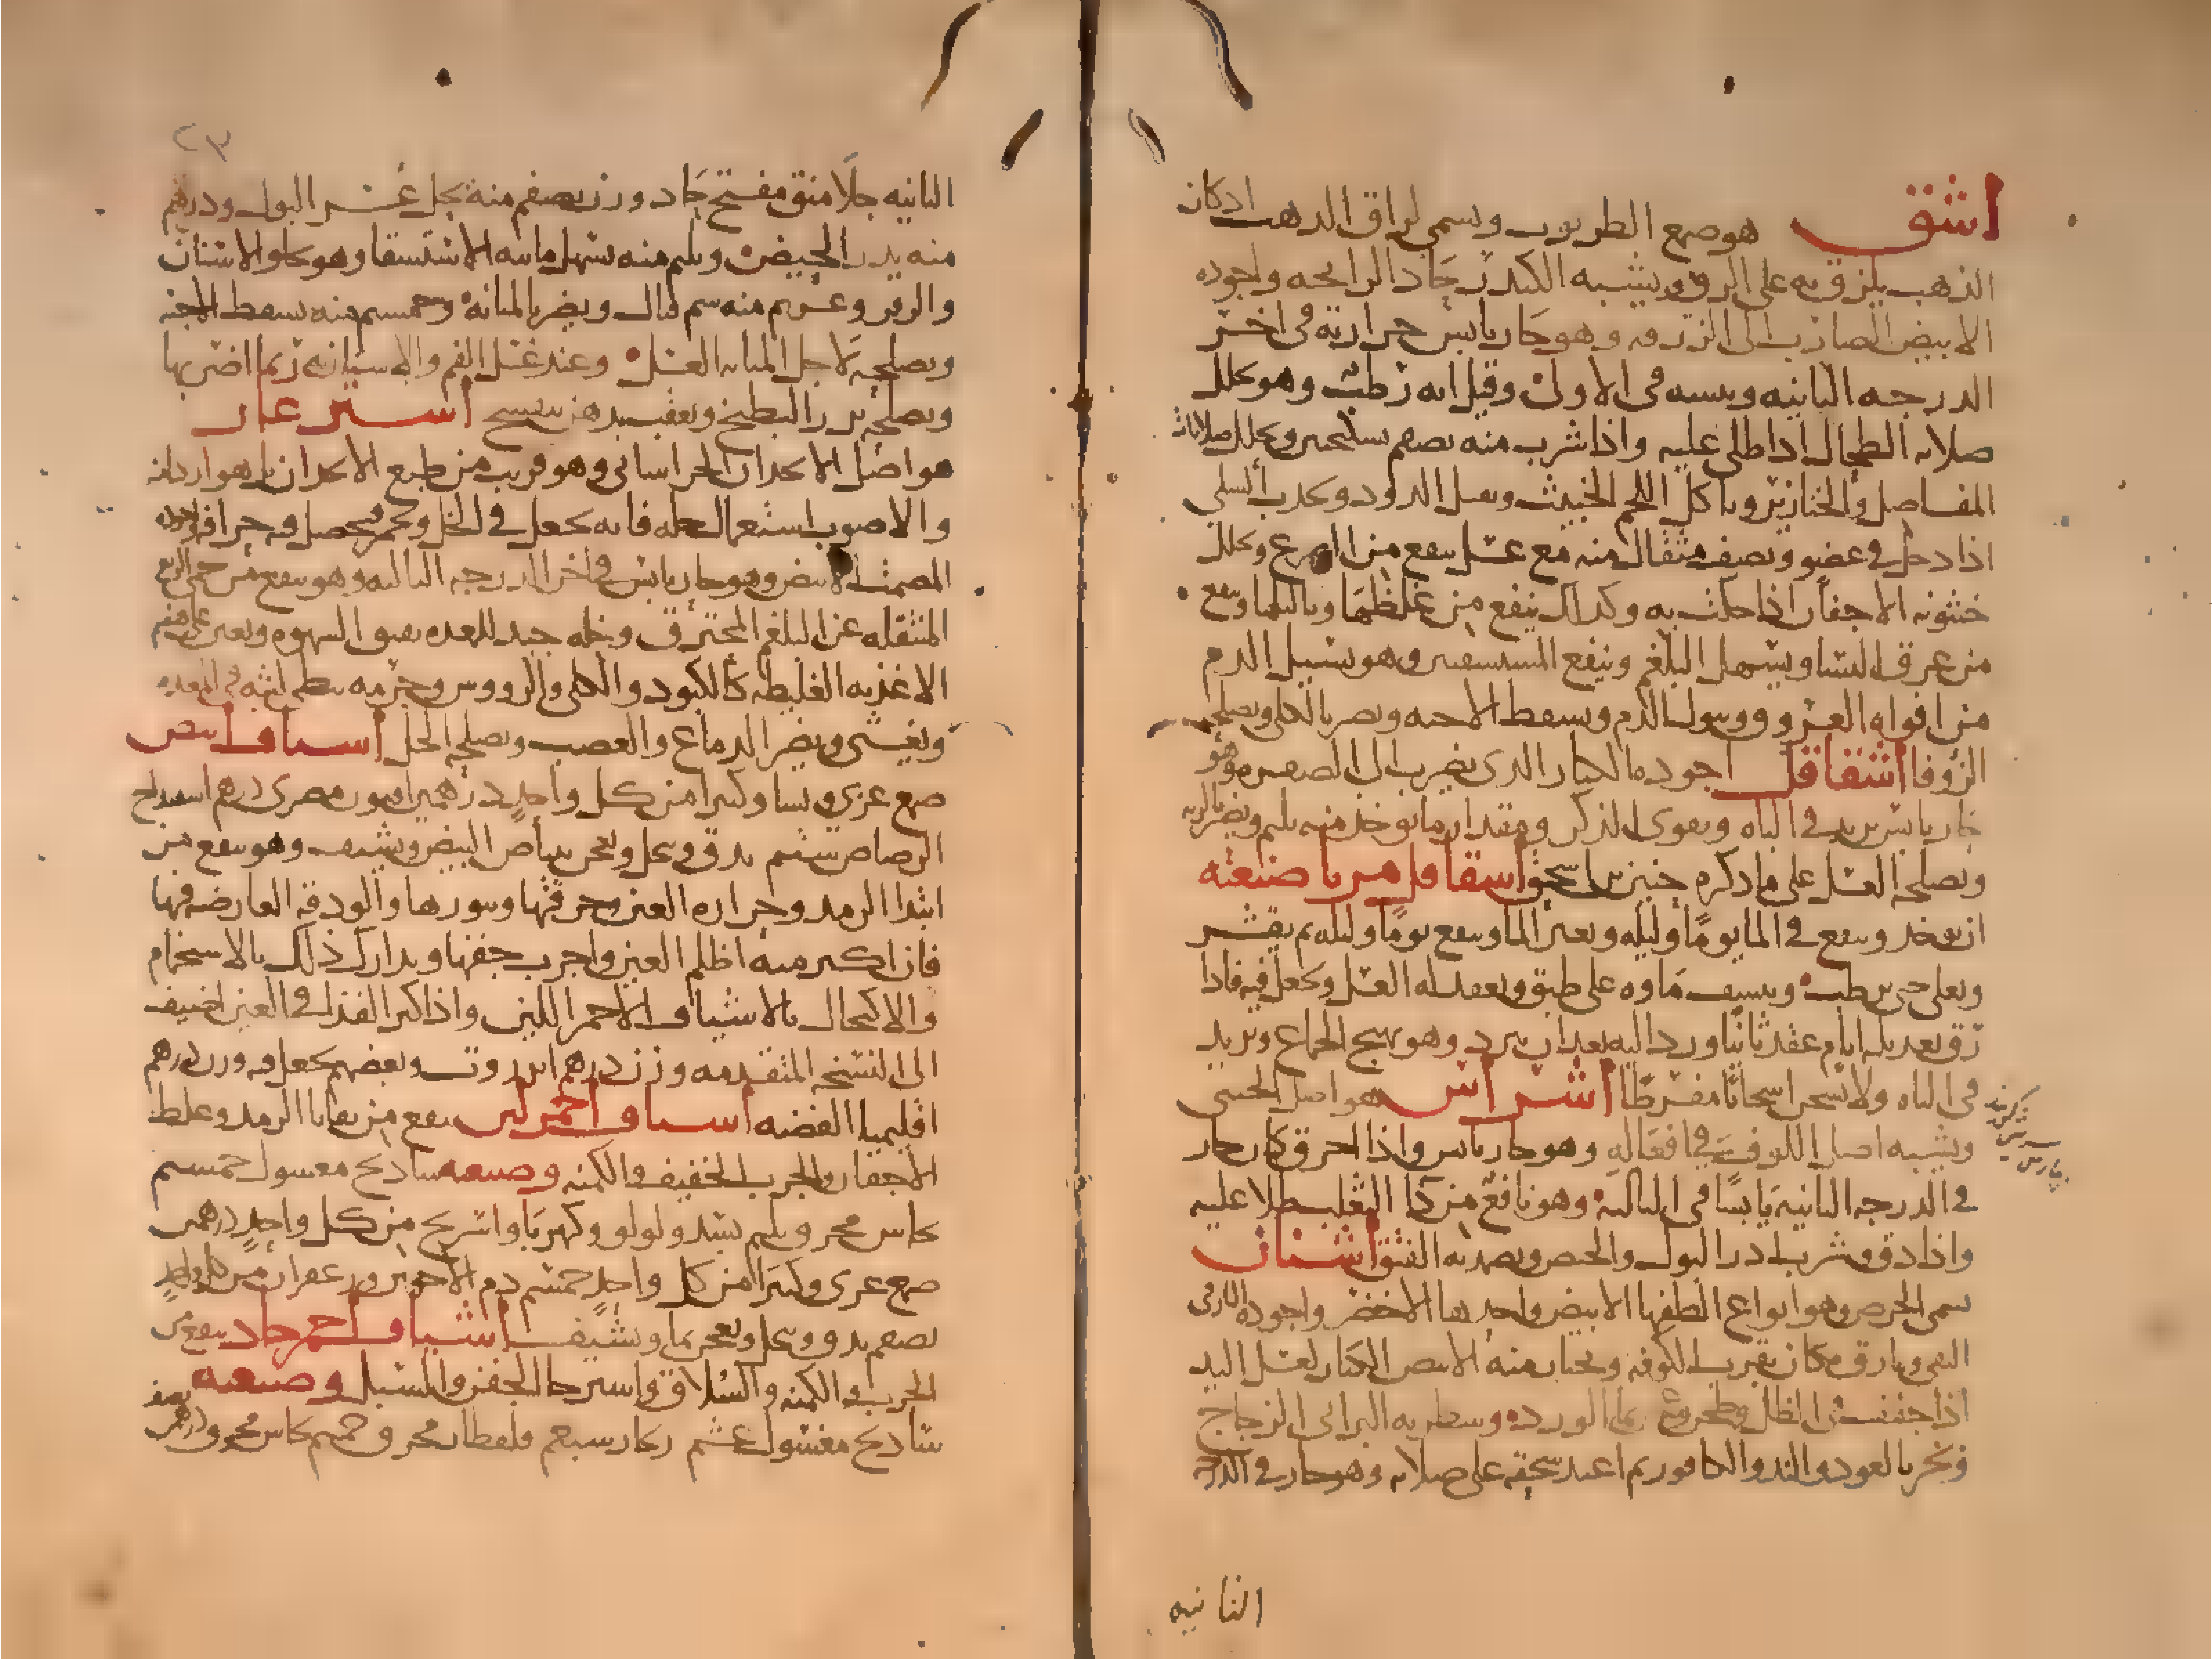 اشق هو صمغ الطرثوث ويسمى لزاق الذهب اذ كان
الذهب يلزق به على الرق ويشبه الكندر حاد الرائحه واجوده
الابيض الضارب الى الزرقه وهو حار يابس حرارته في اخر
الدرجه الثانيه ويبسه في الاولى وقيل انه رطب وهو يحلل
صلابه الطحال اذا طلى عليه واذا شرب منه نصفم بسكنجبين ويحلل صلابات
المفاصل والخنازير وياكل اللحم الخبيث ويقتل الدود ويجذب السلى
اذا دخل في عضو ونصف مثقال منه مع عسل ينفع من الصرع ويحلل
خشونه الاجفان اذا حكت به وكذلك ينفع من غلظها وثاليلها وينفع
من عرق النسا ويسهل البلغم وينفع المستسقين وهو يسيل الدم
من افواه العروق ويبول الدم ويسقط الاجنه ويضر بالكلى ويصلحه
الزوفا اشقاقل اجوده الكبار الذي يضرب الى الصفره وهو
حار يابس يزيد في الباه ويقوى الذكر ومقدار ما يوخذ منه ثلثم ويضر بالريه
ويصلحه العسل على ما ذكره حنين بن اسحق اشقاقل مربا صنعته
ان يوخذ وينقع في الما يوما وليله ويغير الما وينقع يوما وليله ثم يقشر
ويغلى حتى يرطب وينشف ماوه على طبق ويعقد له العسل ويجعل فيه فاذا
رق بعد ثلثه ايام عقد ثانيا ورد اليه بعد ان يبرد وهو يهيج الجماع ويزيد
في الباه ولا يسخن اسخانا مفرطا اشراس هو اصل الخنثى
ويشبه اصل اللوف في افعاله وهو حار يابس واذا احرق كان حار
في الدرجه الثانيه يابسا في الثالثه وهو نافع من دا الثعلب طلا عليه
واذا دق وشرب ادر البول والحيض ويضمد به الفتق اشنان
يسمى الحرض وهو انواع الطفها الابيض واحدها الاخضر واجوده البارقى
النقى وبارق مكان بقرب الكوفه ويختار منه الابيض الكبار لغسل اليد
اذا جفف في الظل وطحن بما الورد وسطر به البرانى الزجاج
وبخر بالعود والند والكافور ثم اعيد سحقه على صلابه وهو حار في الدرجه
الثانيه
الثانيه جلا منق مفتح حاد وزن نصفم منه يحل عسر البول ودرهم
منه يدر الحيض وثلثم منه يسهل مائيه الاستسقا وهو يجلو الاسنان
والوقر وعشرم منه سم قتال ويضر بالمثانه وخمسم منه يسقط الاجنه
ويصلحه لاجل المثانه العسل وعند غسل الفم والاسنان به ربما اضر بها
ويصلحه بزر البطيخ ويعقب بدهن بنفسج اشترغار
هو اصل الانجدان الخراسانى وهو قريب من طبع الانجدان بل هو اردا منه
والاصوب استعمال خله فانه يجعل في الخل ويخمر فيحصل فيه حرافه واجوده
المصمت الابيض وهو حار يابس في اخر الدرجه الثالثه وهو ينفع من حمى الربع
المنتقله عن البلغم المحترق وخله جيد للمعده يقوى الشهوه ويعين على هضم
الاغذيه الغليظه كالكبود والكلى والروس وجرمه بطى لبثه في المعده
ويغشى ويضر الدماغ والعصب ويصلحه الخل اشياف ابيض
صمغ عربى ونشا وكثيرا من كل واحد درهمين افيون مصرى درهم اسفيداج
الرصاص ستم يدق وينخل ويعجن ببياض البيض ويشيف وهو ينفع من
ابتدا الرمد وحراره العين وحرقتها وبثورها والودقه العارضه فيها
فان اكثر منه اظلم العين واجرب جفنها ويدارك ذلك بالاستحمام
والاكتحال بالاشياف الاحمر اللين واذا كثر القذا في العين اضيف
الى النسخه المتقدمه وزن درهم انزروت وبعضهم يجعل فيه وزن درهم
اقليميا الفضه اشياف احمر لين ينفع من بقايا الرمد وغلظ
الاجفان والجرب الخفيف والكمنه وصنعته شادنج مغسول خمسم
نحاس محرق ثلثم بسد ولولو وكهربا واشريح من كل واحد درهمين
صمغ عربى وكثيرا من كل واحد خمسم دم الاخوين وزعفران من كل واحد
نصفم يدق وينخل ويعجن بما ويشيف اشياف احمر حاد ينفع من
الجرب والكمنه والسلاق واسترخا الجفن والسبل وصنعته
شادنج مغسول عشم زنجار سبعم قلقطار محرق خمسم نحاس محرق درهمين